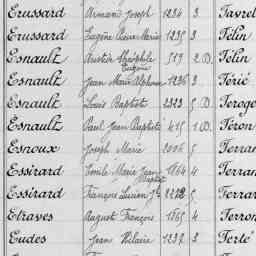 Erussard Armand Joseph 1234 3 Favrel
Erussard Eugène Pierre Marie 1235 3 Félin
Esnault Aristide Théophile 519 2 D. Félin
Eugène
Esnault Jean Marie Alphonse 1236 3 Férié
Esnault Louis Baptist 2323 5 D. Feroge
Esnault Paul Jean Baptiste 415 1 D. Féron
Esnoux Joseph Marie 2006 5 Ferran
Essirard Emile Marie Jean 1864 4 Ferran
Baptist
Essirard François Lucien 5 Ferran
Etraves August François 1865 4 Ferron
Eudes Jean Hilaire 1237 3 Ferté